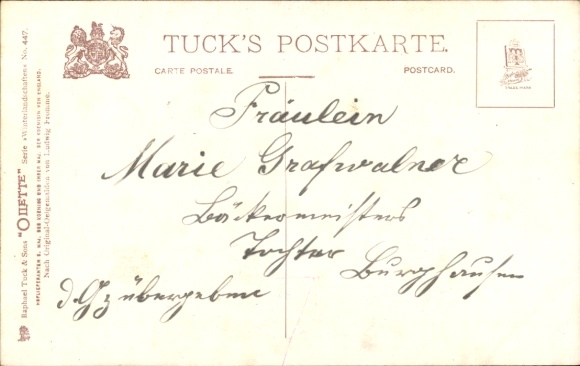 TUCK'S POSTKARTE.
CARTE POSTALE.
POSTCARD.
TRADE MARK
Fräulein
Marie Grafwalner
Bäckermeisters
Tochter
Burghausen
übergeben
Raphael Tuck & Sons "OILETTE" Serie »Winterlandschaften« No. 447.
HOFLIEFERANTEN S. MAJ. DES KOENIGS UND IHRER MAJ. DER KOENIGIN VON ENGLAND.
Nach Original-Oelgemälden von Ludwig Fromme.